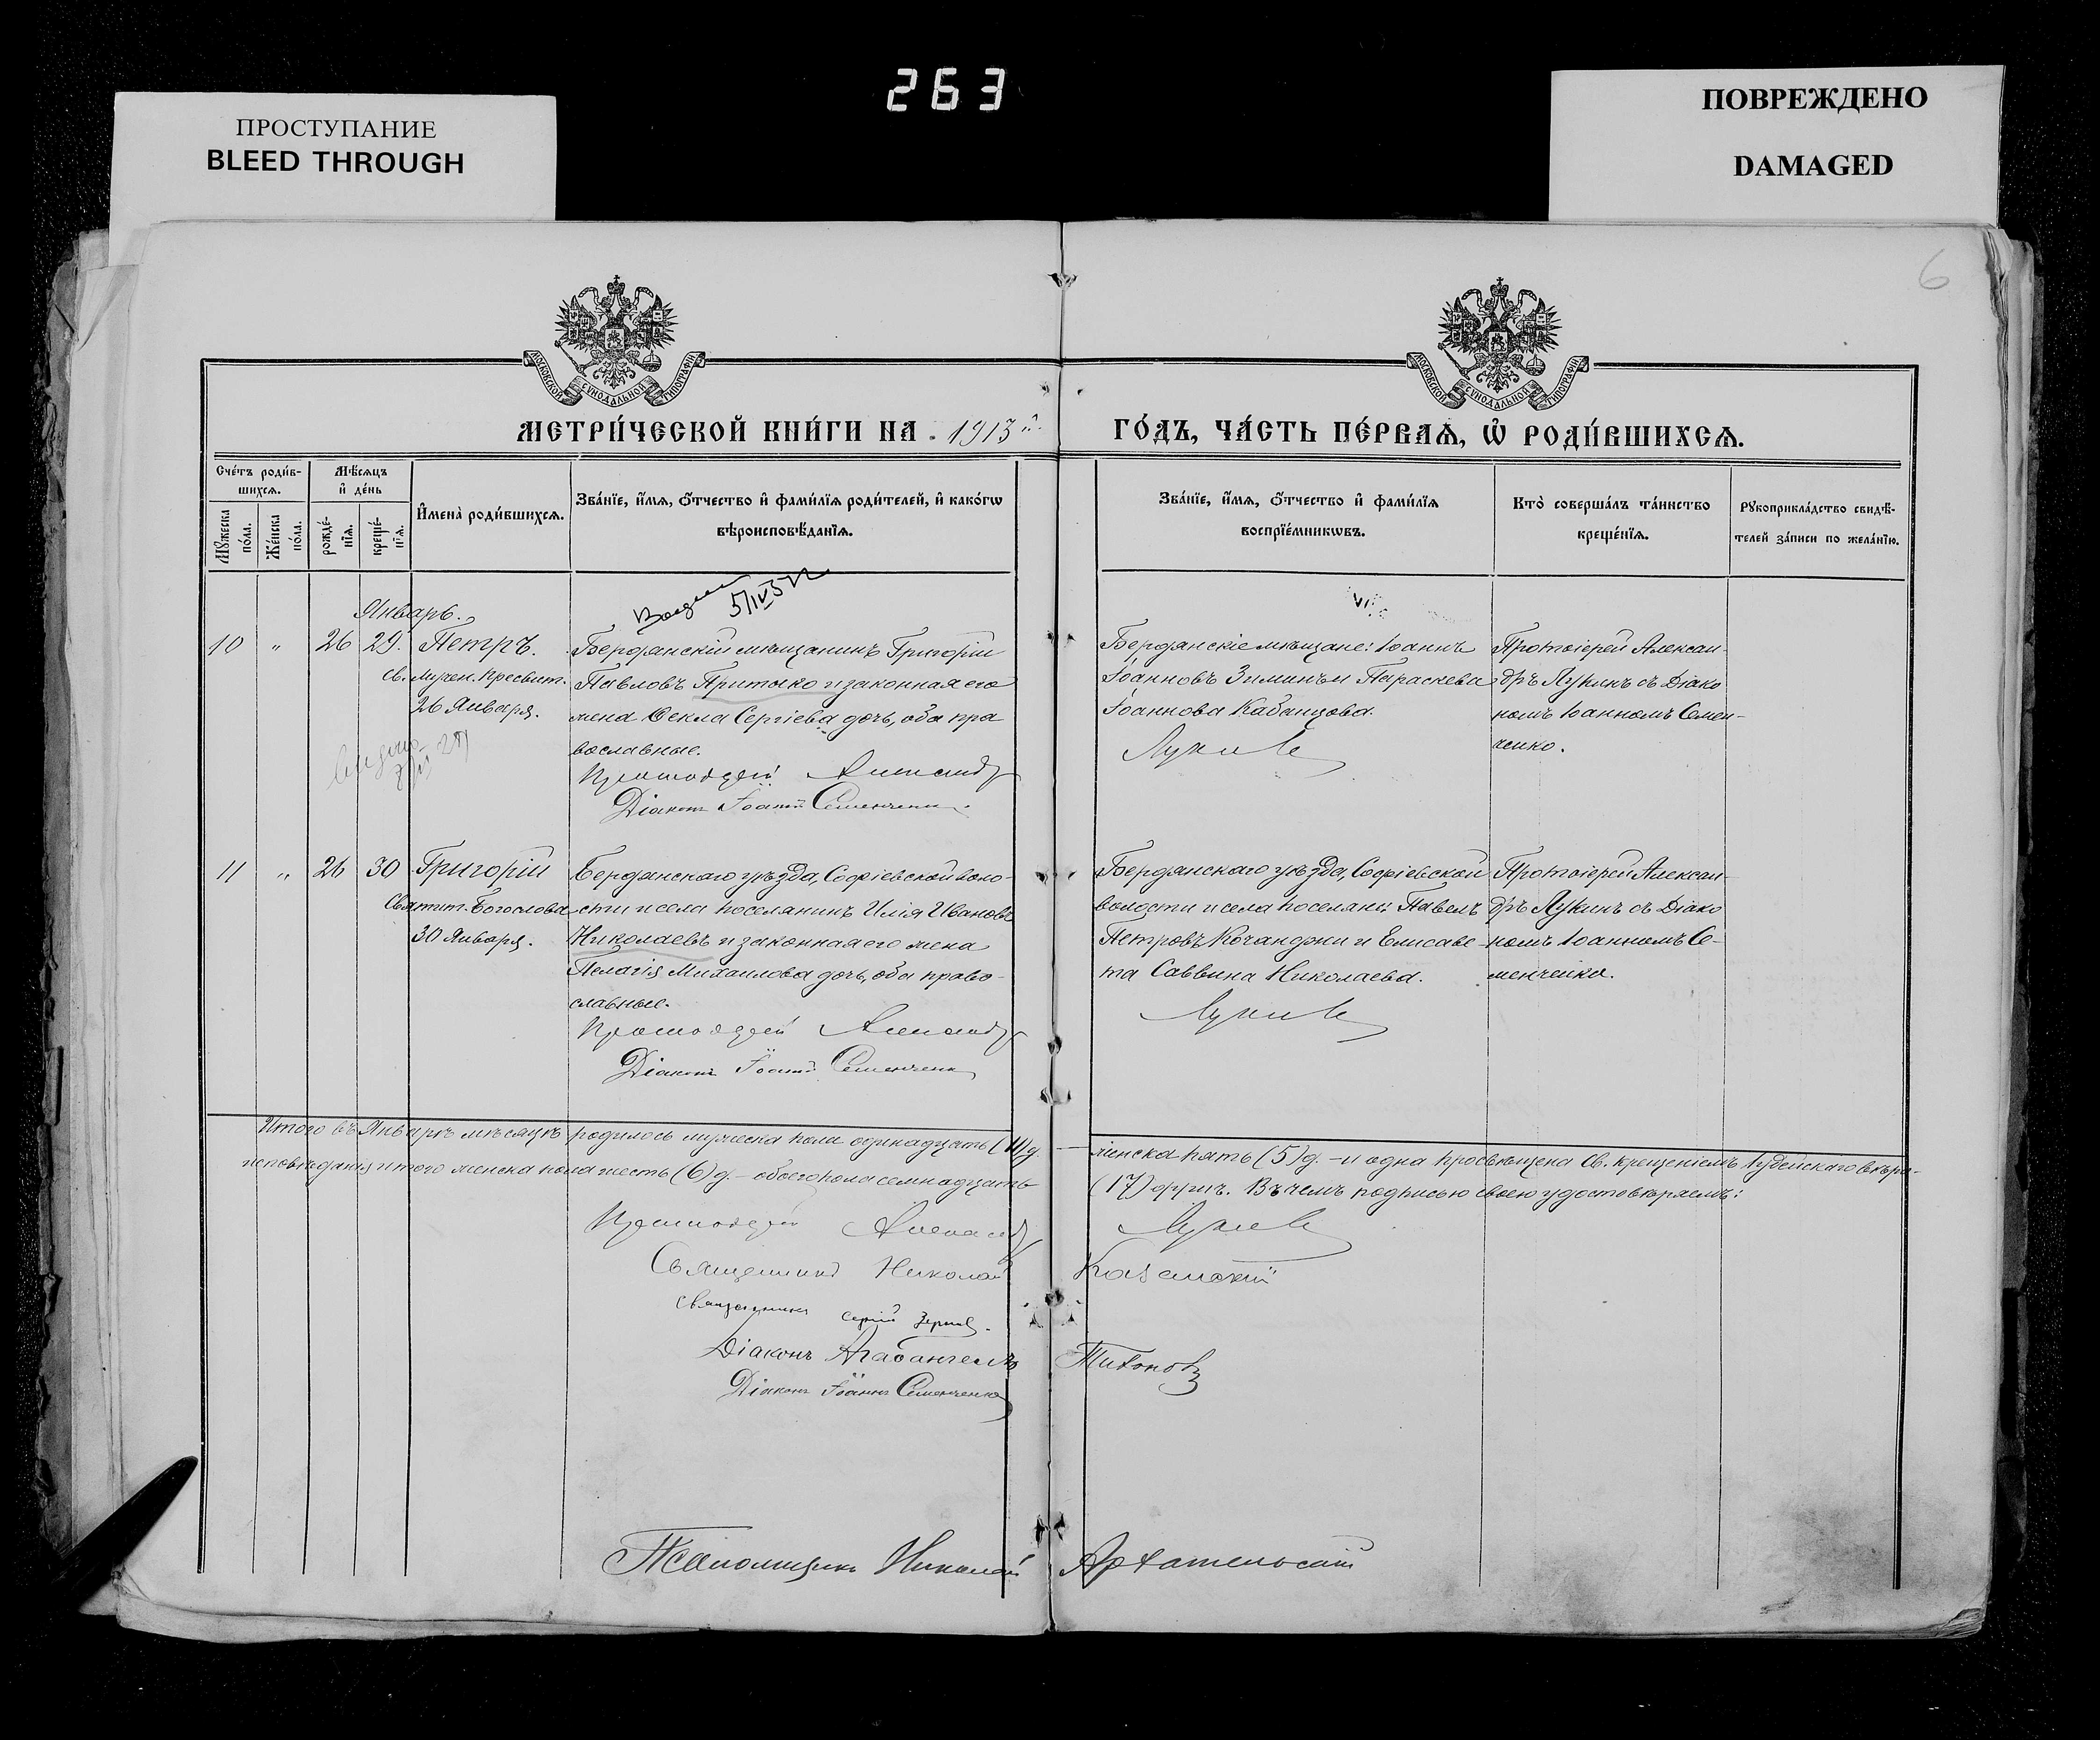 263
ПРОСТУПАНИЕ
BLEED THROUGH
ПОВРЕЖДЕНО
DAMAGED
6
МОСКОВСКОЙ СУНОДАЛЬНОЙ ТИПОГРАФІИ
МОСКОВСКОЙ СУНОДАЛЬНОЙ ТИПОГРАФІИ
МЕТРИ́ЧЕСКОЙ КНИ́ГИ НА 1913й
ГО́ДЪ, ЧА́СТЬ ПЕ́РВАѦ, Ѡ҆ РОДИ́ВШИХСѦ.
Сче́тъ роди́в-
шихсѧ.
Мꙋ́жеска по́ла.
Же́нска по́ла.
Мѣ́сѧцъ
и҆ де́нь
рожде́-
нїѧ.
креще́-
нїѧ.
И҆мена̀ роди́вшихсѧ.
Зва́нїе, и҆́мѧ, ѻ҆́тчество и҆ фами́лїѧ роди́телей, и҆ како́гѡ
вѣроисповѣ́данїѧ.
Зва́нїе, и҆́мѧ, ѻ҆́тчество и҆ фами́лїѧ
воспрїе́мникѡвъ.
Кто̀ соверша́лъ та́инство
креще́нїѧ.
Рꙋкоприкла́дство свидѣ́-
телей за́писи по жела́нїю.
Январь.
10 " 26 29. Петръ.
св. мучен. пресвит.
26 Января.
Бердянскій мѣщанинъ Григорій
Павловъ Притыко и законная его
жена Ѳекла Сергіева дочь, оба пра
вославные.
Протоіерей Александръ
Діаконъ Іоаннъ Семенченко
Бердянскіе мѣщане: Іоаннъ
Іоанновъ Зиминъ и Параскева
Іоаннова Кабанцова.
Лукинъ
Протоіерей Алексан-
дръ Лукинъ съ Діако
номъ Іоанномъ Семен-
ченко.
11 " 26 30 Григорій
Святит. Богослова
30 Января.
Бердянскаго уѣзда, Софіевской воло-
сти и села поселянинъ Илія Ивановъ
Николаевъ и законная его жена
Пелагія Михаилова дочь, оба право-
славные.
Протоіерей Александръ
Діаконъ Іоаннъ Семенченко
Бердянскаго уѣзда, Софіевской
волости и села поселяне: Павелъ
Петровъ Кочанджи и Елисаве-
та Саввина Николаева.
Лукинъ
Протоіерей Алексан-
дръ Лукинъ съ Діако
номъ Іоанномъ Се-
менченко.
Итого въ Январѣ мѣсяцѣ родилось мужеска пола одинадцать (11) д. — женска пять (5) д. — и одна просвѣщена св. крещеніемъ Іудейскаго вѣро-
исповѣданія итого женска пола шесть (6) д. — обоего пола семнадцать (17) душъ. Въ чемъ подписью своею удостовѣряемъ:
Протоіерей Александръ Лукинъ
Священникъ Николай Казанскій
Священникъ Сергій Зерновъ.
Діаконъ Агаѳангелъ Тихоновъ
Діаконъ Іоаннъ Семенченко
Псаломщикъ Николай Архангельскій